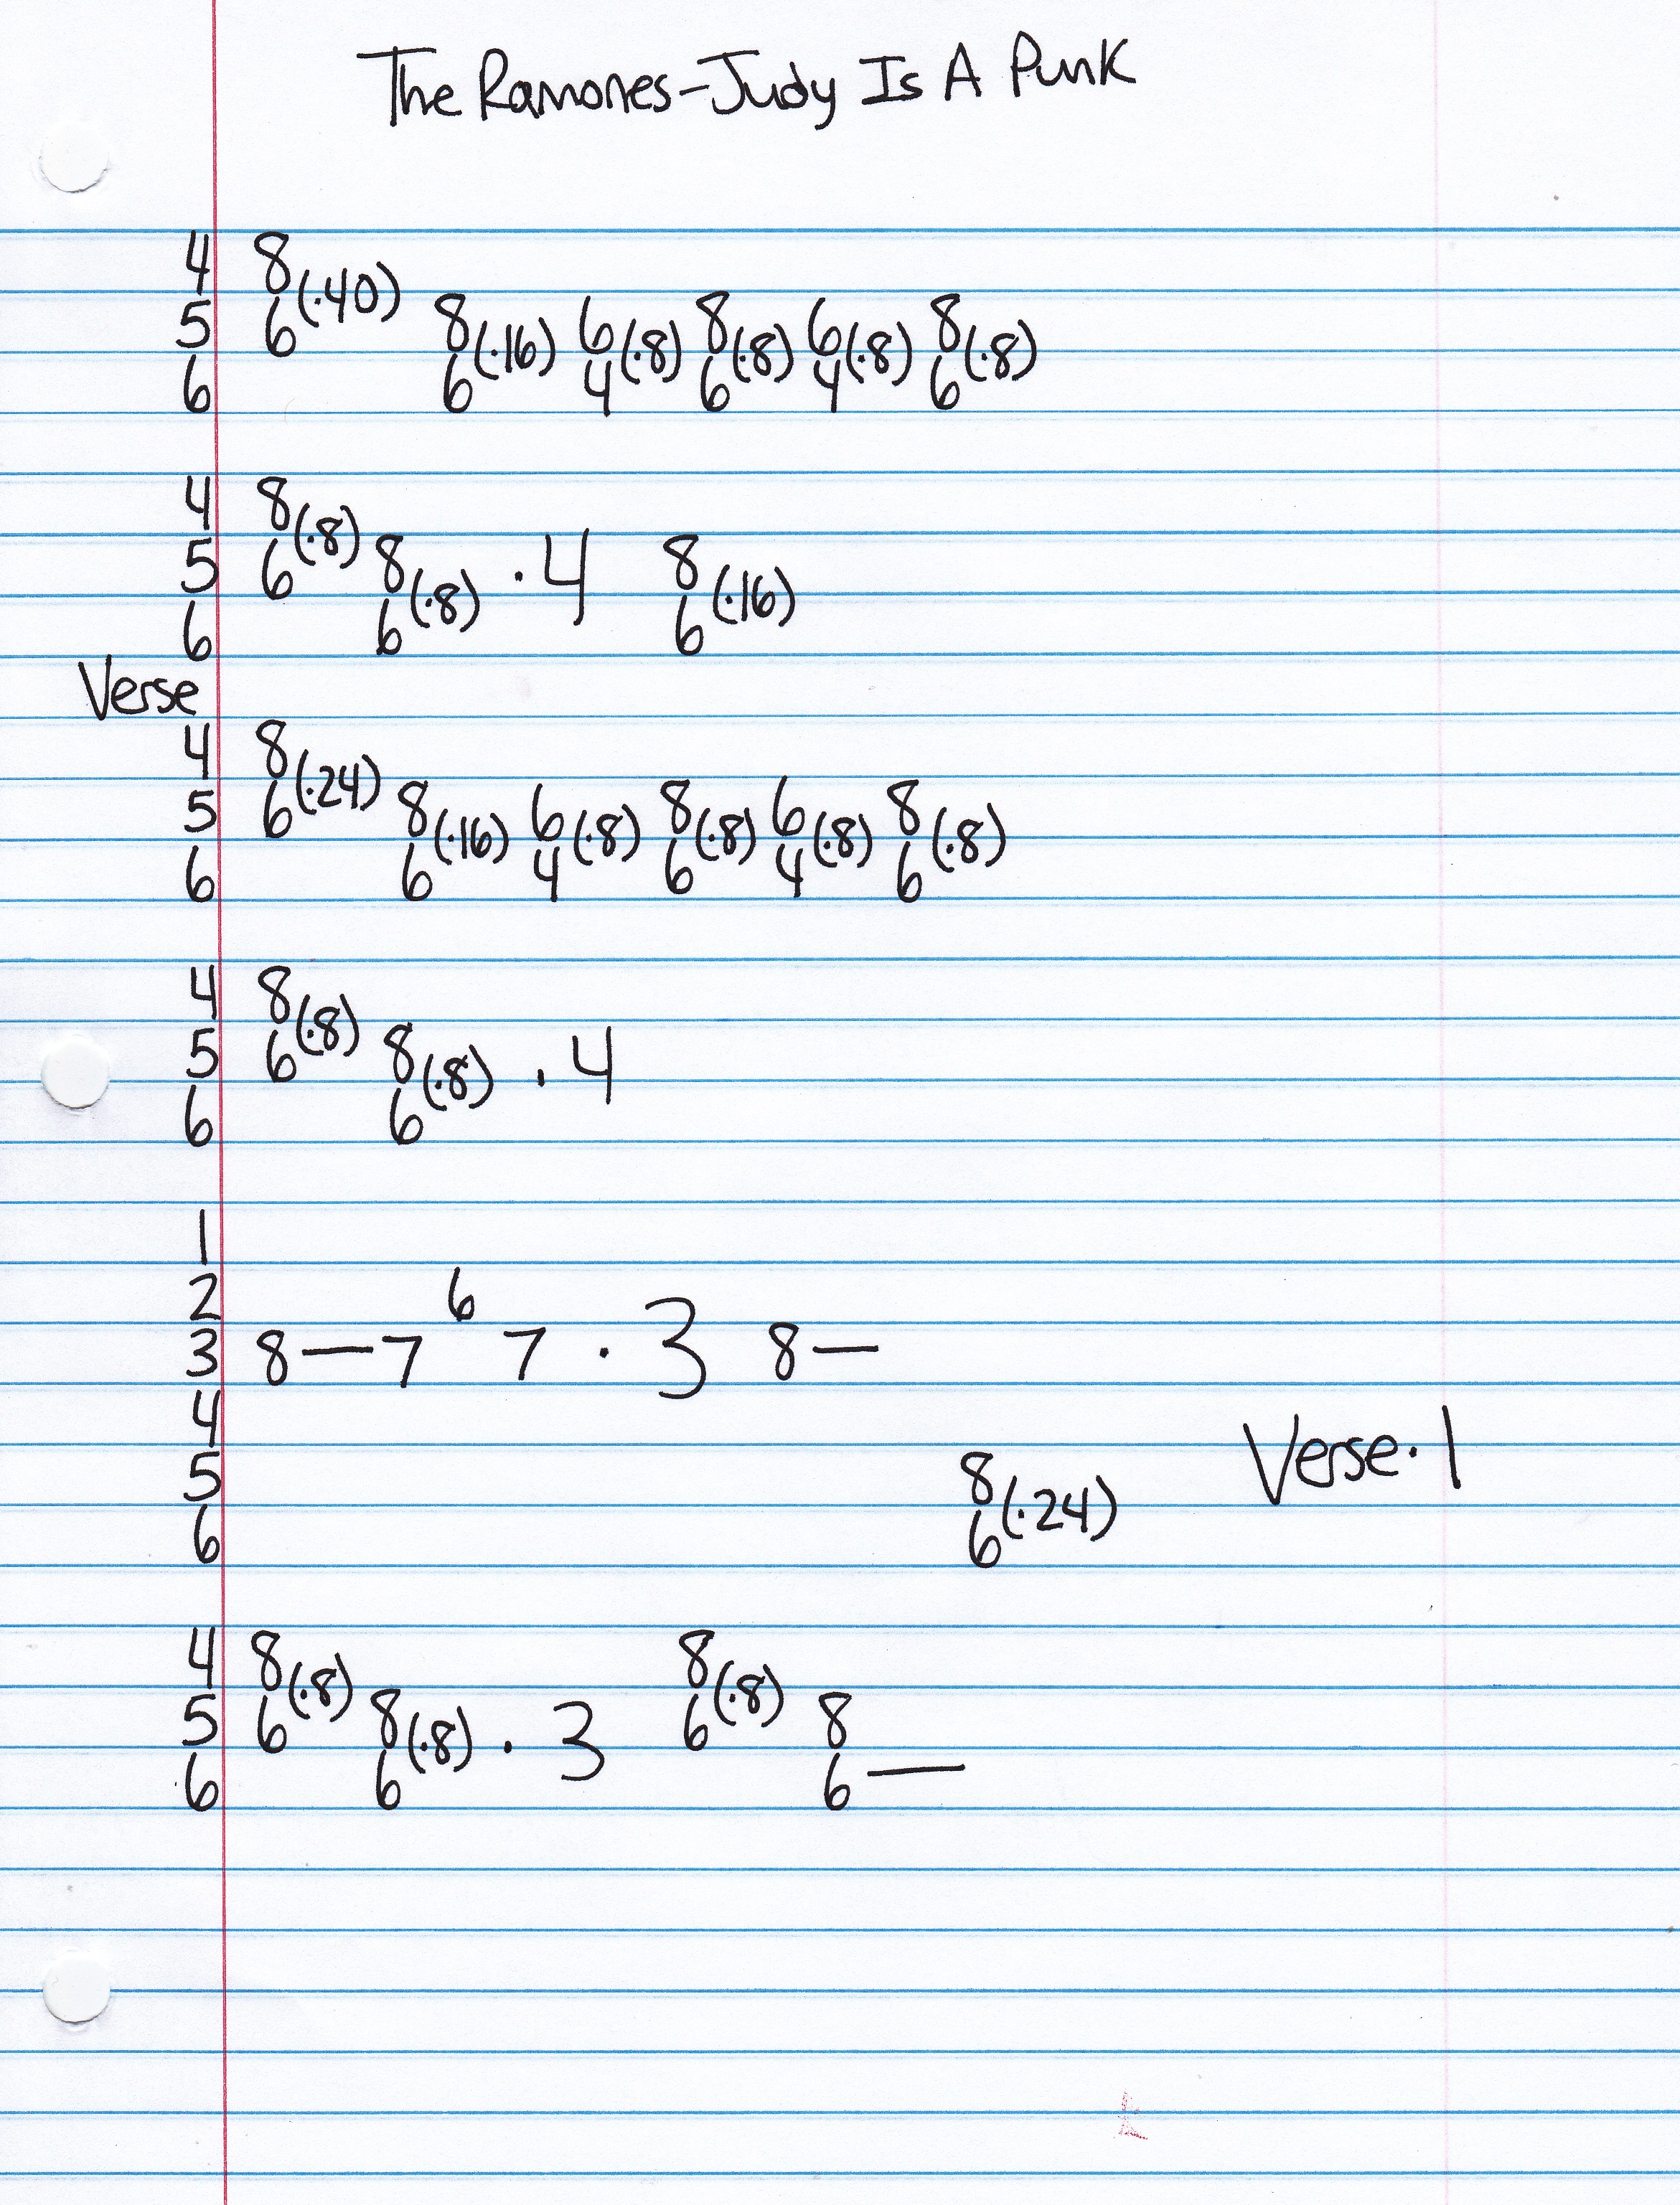 The Ramones-Judy Is A Punk
4 8
5 6(·40) 8(·16) 6(·8) 8(·8) 6(·8) 8(·8)
6 6 4 6 4 6
4 8
5 6(·8) 8(·8) · 4 8(·16)
6 6 6
Verse
4 8
5 6(·24) 8(·16) 6(·8) 8(·8) 6(·8) 8(·8)
6 6 4 6 4 6
4 8
5 6(·8) 8(·8) · 4
6 6
1
2 6
3 8—7 7 · 3 8—
4
5 8(·24) Verse·1
6 6
4 8 8
5 6(·8) 8(·8) · 3 6(·8) 8
6 6 6—